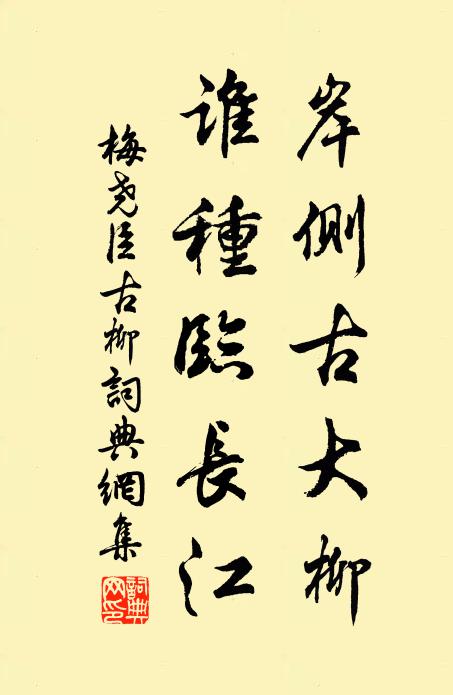 岸側古大柳
誰種臨長江
梅堯臣古柳詞典網集
詞典網印